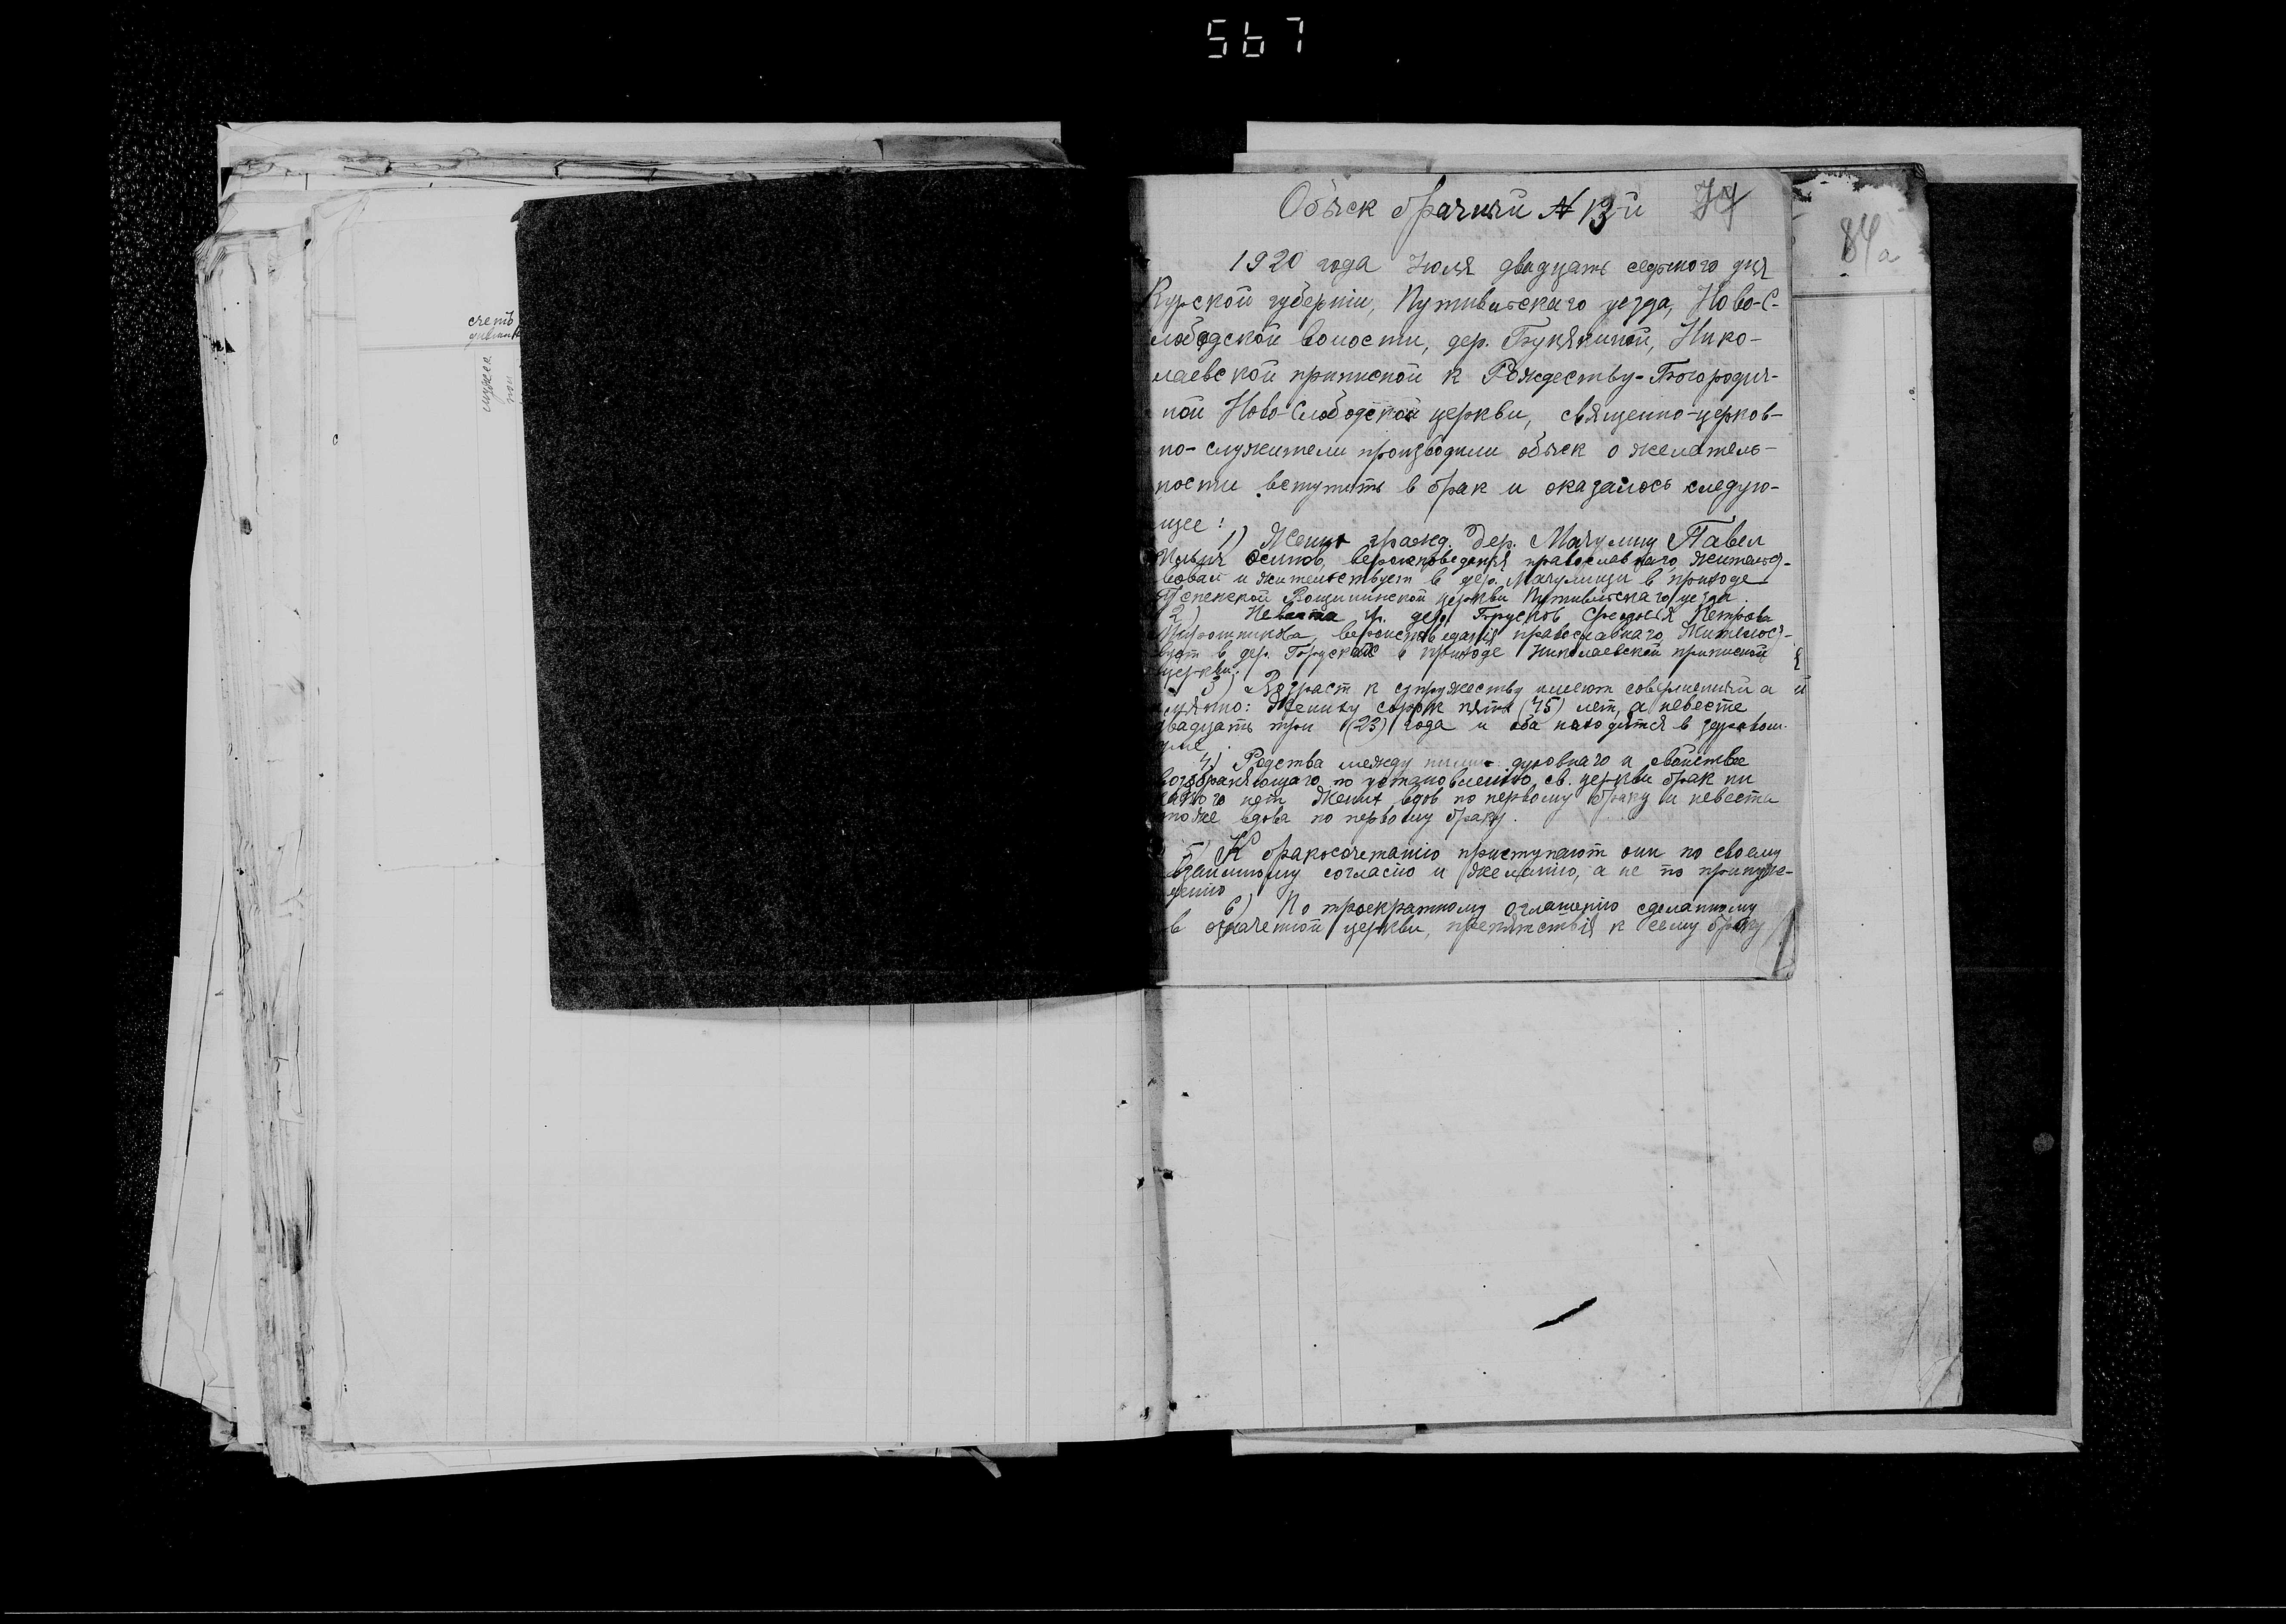 567
Обыск брачный № 13-й 77
84а
1920 года Июля двадцать седьмого дня
Курской губернiи, Путивльскаго уезда, Ново-С-
лободской волости, дер. Нико-
лаевской приписной к Рождеству-Богородич-
ной Ново-Слободской церкви, священно-церков-
но-служители производили обыск о желатель-
ности вступить в брак и оказалось следую-
щее:
1) Жених гражд. дер. Мачулищ Павел
Ильин Осипов, вероисповеданiя православнаго, жительст-
вовал и жительствует в дер. Мачулищи в приходе
Успенской церкви Путивльскаго уезда.
2) Невеста гр. дер. Брусков Петрова
вероисповеданiя православнаго, Жительст-
вует в дер. Брусках в приходе Николаевской приписной
церкви.
3) Возраст к супружеству имеют совершенный а
именно: Жениху сорок пять (45) лет, а невесте
двадцать три (23) года и оба находятся в здравом
уме.
4) Родства между ними духовнаго и свойства
возбраняющаго по установленiю св. церкви брак ни
какого нет Жених вдов по первому браку и невеста
тоже вдова по первому браку.
5) К бракосочетанiю приступают они по своему
взаимному согласiю и желанiю, а не по принуж-
денiю
6) По троекратному оглашенiю сделанному
в означенной церкви, препятствiя к сему браку
счетъ
мужеска